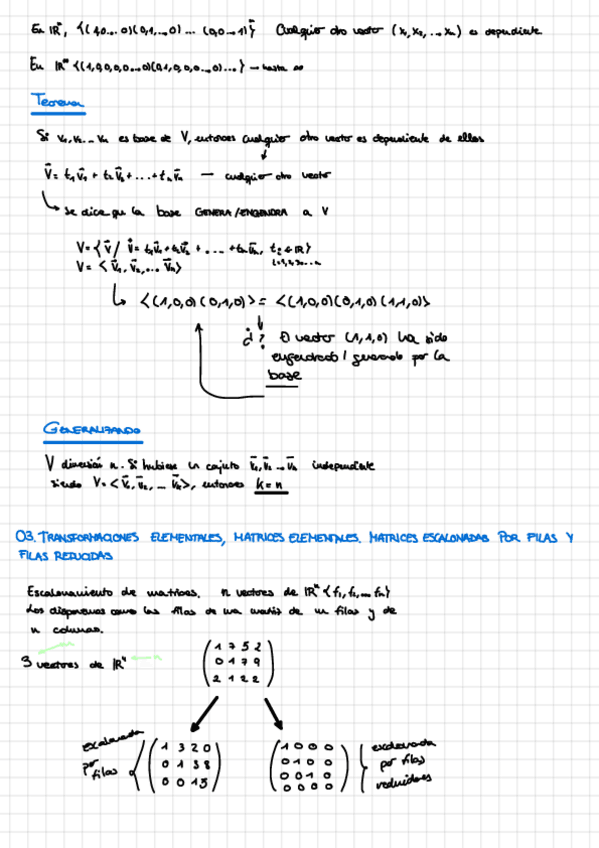 En ℝⁿ, {(1,0...0)(0,1,...,0)... (0,0...1)} Cualquier otro vector (x₁,x₂,...xₙ) es dependiente
En ℝ^∞ {(1,0,0,0,0...0)(0,1,0,0,0...,0)...} — hasta ∞
Teorema
Si v₁,v₂...vₙ es base de V, entonces cualquier otro vector es dependiente de ellos
v⃗ = t₁v⃗₁ + t₂v⃗₂ + ... + tₙv⃗ₙ — cualquier otro vector
↳ se dice que la base GENERA/ENGENDRA a V
V = {v⃗ / v⃗ = t₁v⃗₁ + t₂v⃗₂ + ... + tₙv⃗ₙ, tᵢ ∈ ℝ}
i=1,2,3...n
V = <v⃗₁, v⃗₂,... v⃗ₙ>
↳ <(1,0,0)(0,1,0)> = <(1,0,0)(0,1,0)(1,1,0)>
¿? El vector (1,1,0) ha sido
engendrado/generado por la
base
GENERALIZANDO
V dimensión n. Si hubiese un conjunto v⃗₁,v⃗₂...v⃗ₖ independiente
siendo V=<v⃗₁,v⃗₂,... v⃗ₖ>, entonces k=n
03. TRANSFORMACIONES ELEMENTALES, MATRICES ELEMENTALES. MATRICES ESCALONADAS POR FILAS Y
FILAS REDUCIDAS
Escalonamiento de matrices. n vectores de ℝⁿ {f₁,f₂,...fₙ}
Los disponemos como las filas de una matriz de m filas y de
n columnas.
3 vectores de ℝ⁴
1 7 5 2
0 1 7 9
2 1 2 2
escalonada
por
filas
1 3 2 0
0 1 3 8
0 0 1 5
1 0 0 0
0 1 0 0
0 0 1 0
0 0 0 0
escalonada
por filas
reducidas